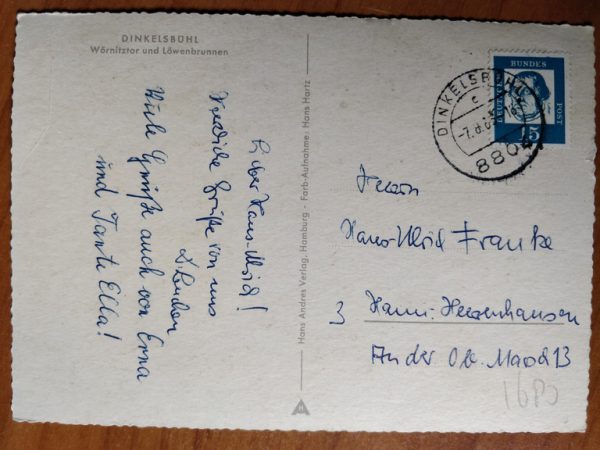 DINKELSBÜHL
Wörnitztor und Löwenbrunnen
Lieber Hans-Ulrich!
Grüße von uns
Viele Grüße auch von Erna
und Tante Ella!
Hans Andres Verlag, Hamburg - Farb-Aufnahme: Hans Hartz
DINKELSBÜHL
c
8804
DEUTSCHE
BUNDES
POST
15
Herrn
Hans-Ulrich Franke
3 Hann.-Herrenhausen
An der 13